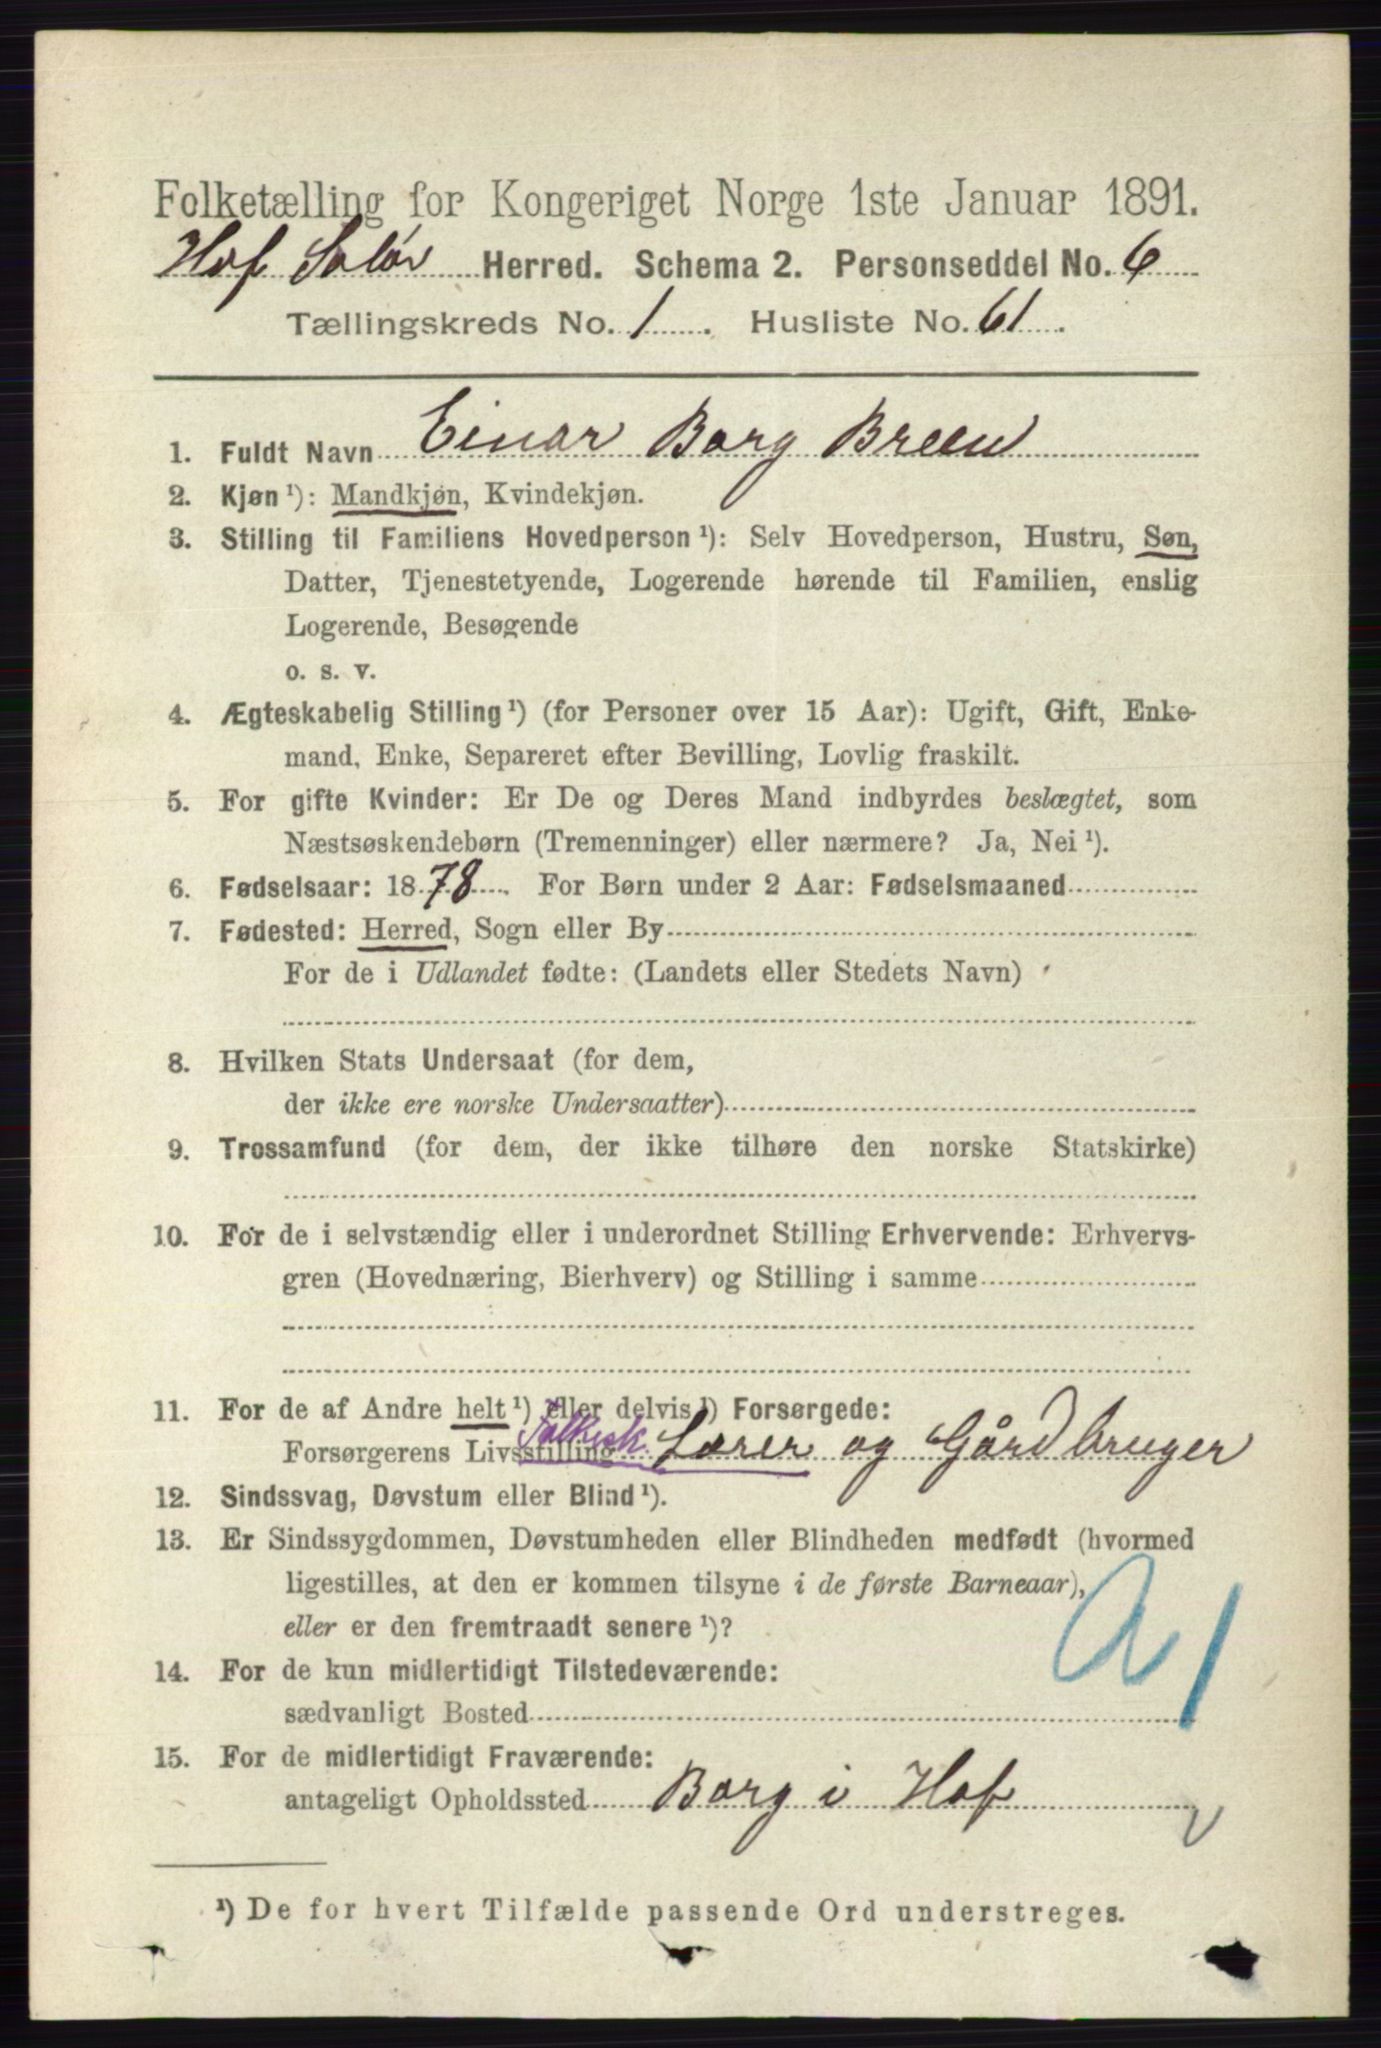 Folketælling for Kongeriget Norge 1ste Januar 1891.
Hof Solør Herred. Schema 2. Personseddel No. 6
Tællingskreds No. 1. Husliste No. 61.
1. Fuldt Navn Einar Borg Breen
2. Kjøn ¹): Mandkjøn, Kvindekjøn.
3. Stilling til Familiens Hovedperson ¹): Selv Hovedperson, Hustru, Søn,
Datter, Tjenestetyende, Logerende hørende til Familien, enslig
Logerende, Besøgende
o. s. v.
4. Ægteskabelig Stilling ¹) (for Personer over 15 Aar): Ugift, Gift, Enke-
mand, Enke, Separeret efter Bevilling, Lovlig fraskilt.
5. For gifte Kvinder: Er De og Deres Mand indbyrdes beslægtet, som
Næstsøskendebørn (Tremenninger) eller nærmere? Ja, Nei ¹).
6. Fødselsaar: 1878. For Børn under 2 Aar: Fødselsmaaned
7. Fødested: Herred, Sogn eller By
For de i Udlandet fødte: (Landets eller Stedets Navn)
8. Hvilken Stats Undersaat (for dem,
der ikke ere norske Undersaatter)
9. Trossamfund (for dem, der ikke tilhøre den norske Statskirke)
10. For de i selvstændig eller i underordnet Stilling Erhvervende: Erhvervs-
gren (Hovednæring, Bierhverv) og Stilling i samme
11. For de af Andre helt ¹) eller delvis ¹) Forsørgede:
Forsørgerens Livsstilling Folkesk. Lærer og Gårdbruger
12. Sindssvag, Døvstum eller Blind ¹).
13. Er Sindssygdommen, Døvstumheden eller Blindheden medfødt (hvormed
ligestilles, at den er kommen tilsyne i de første Barneaar),
eller er den fremtraadt senere ¹)?
a 1
14. For de kun midlertidigt Tilstedeværende:
sædvanligt Bosted
15. For de midlertidigt Fraværende:
antageligt Opholdssted Borg i Hof
¹) De for hvert Tilfælde passende Ord understreges.